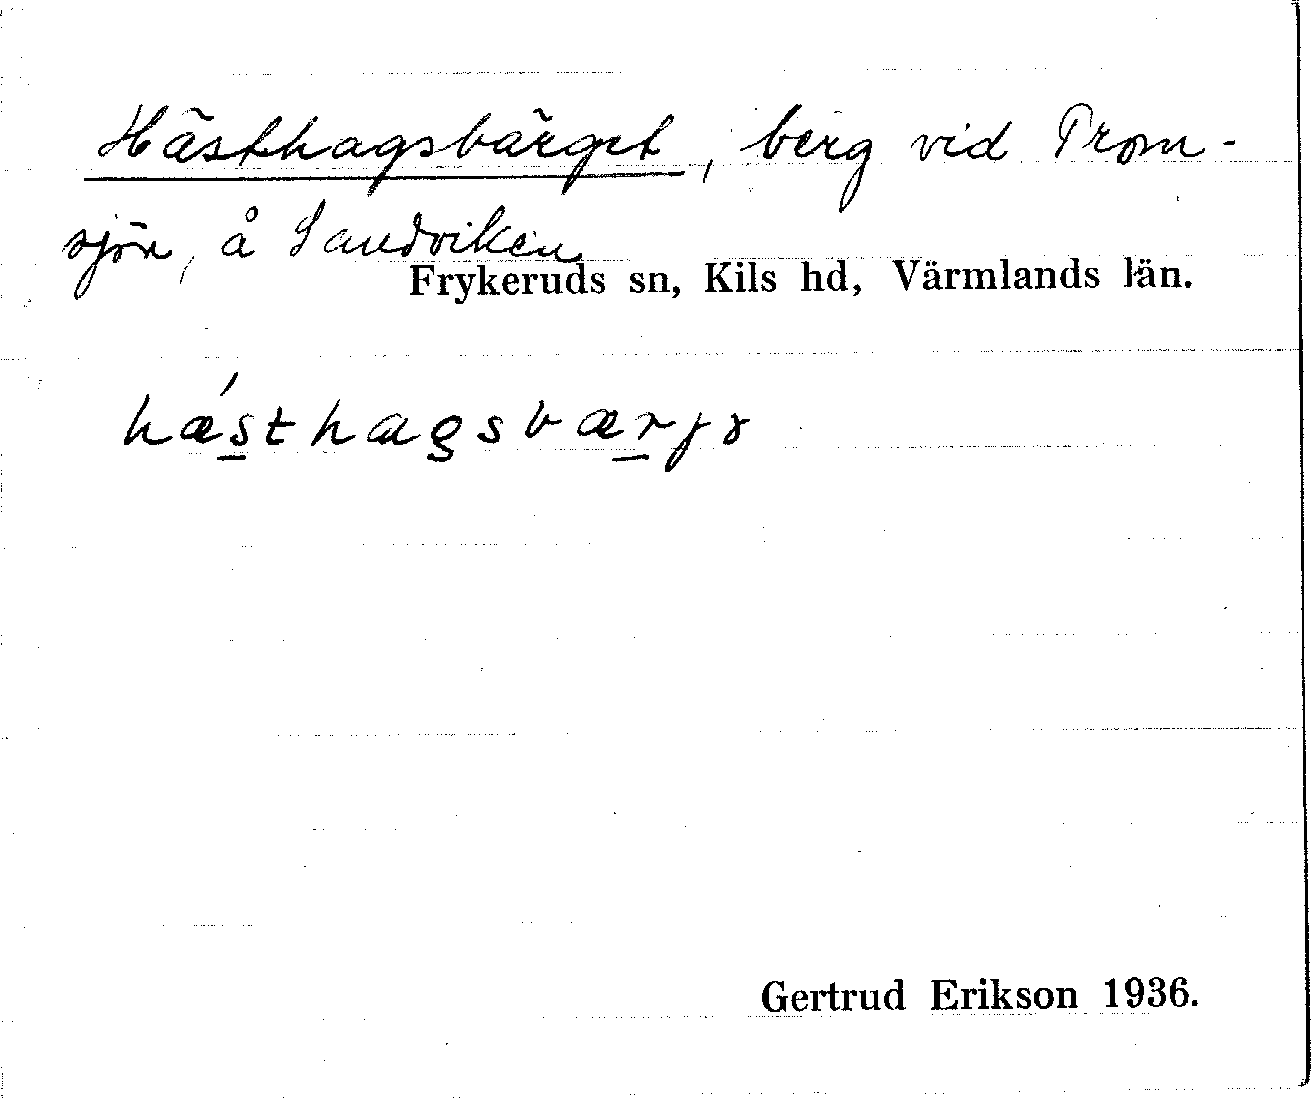 Hästhagsbärget, berg vid Trom-
sjön, å Sandviken
Frykeruds sn, Kils hd, Värmlands län.
hǽsthagsbærjə
Gertrud Erikson 1936.